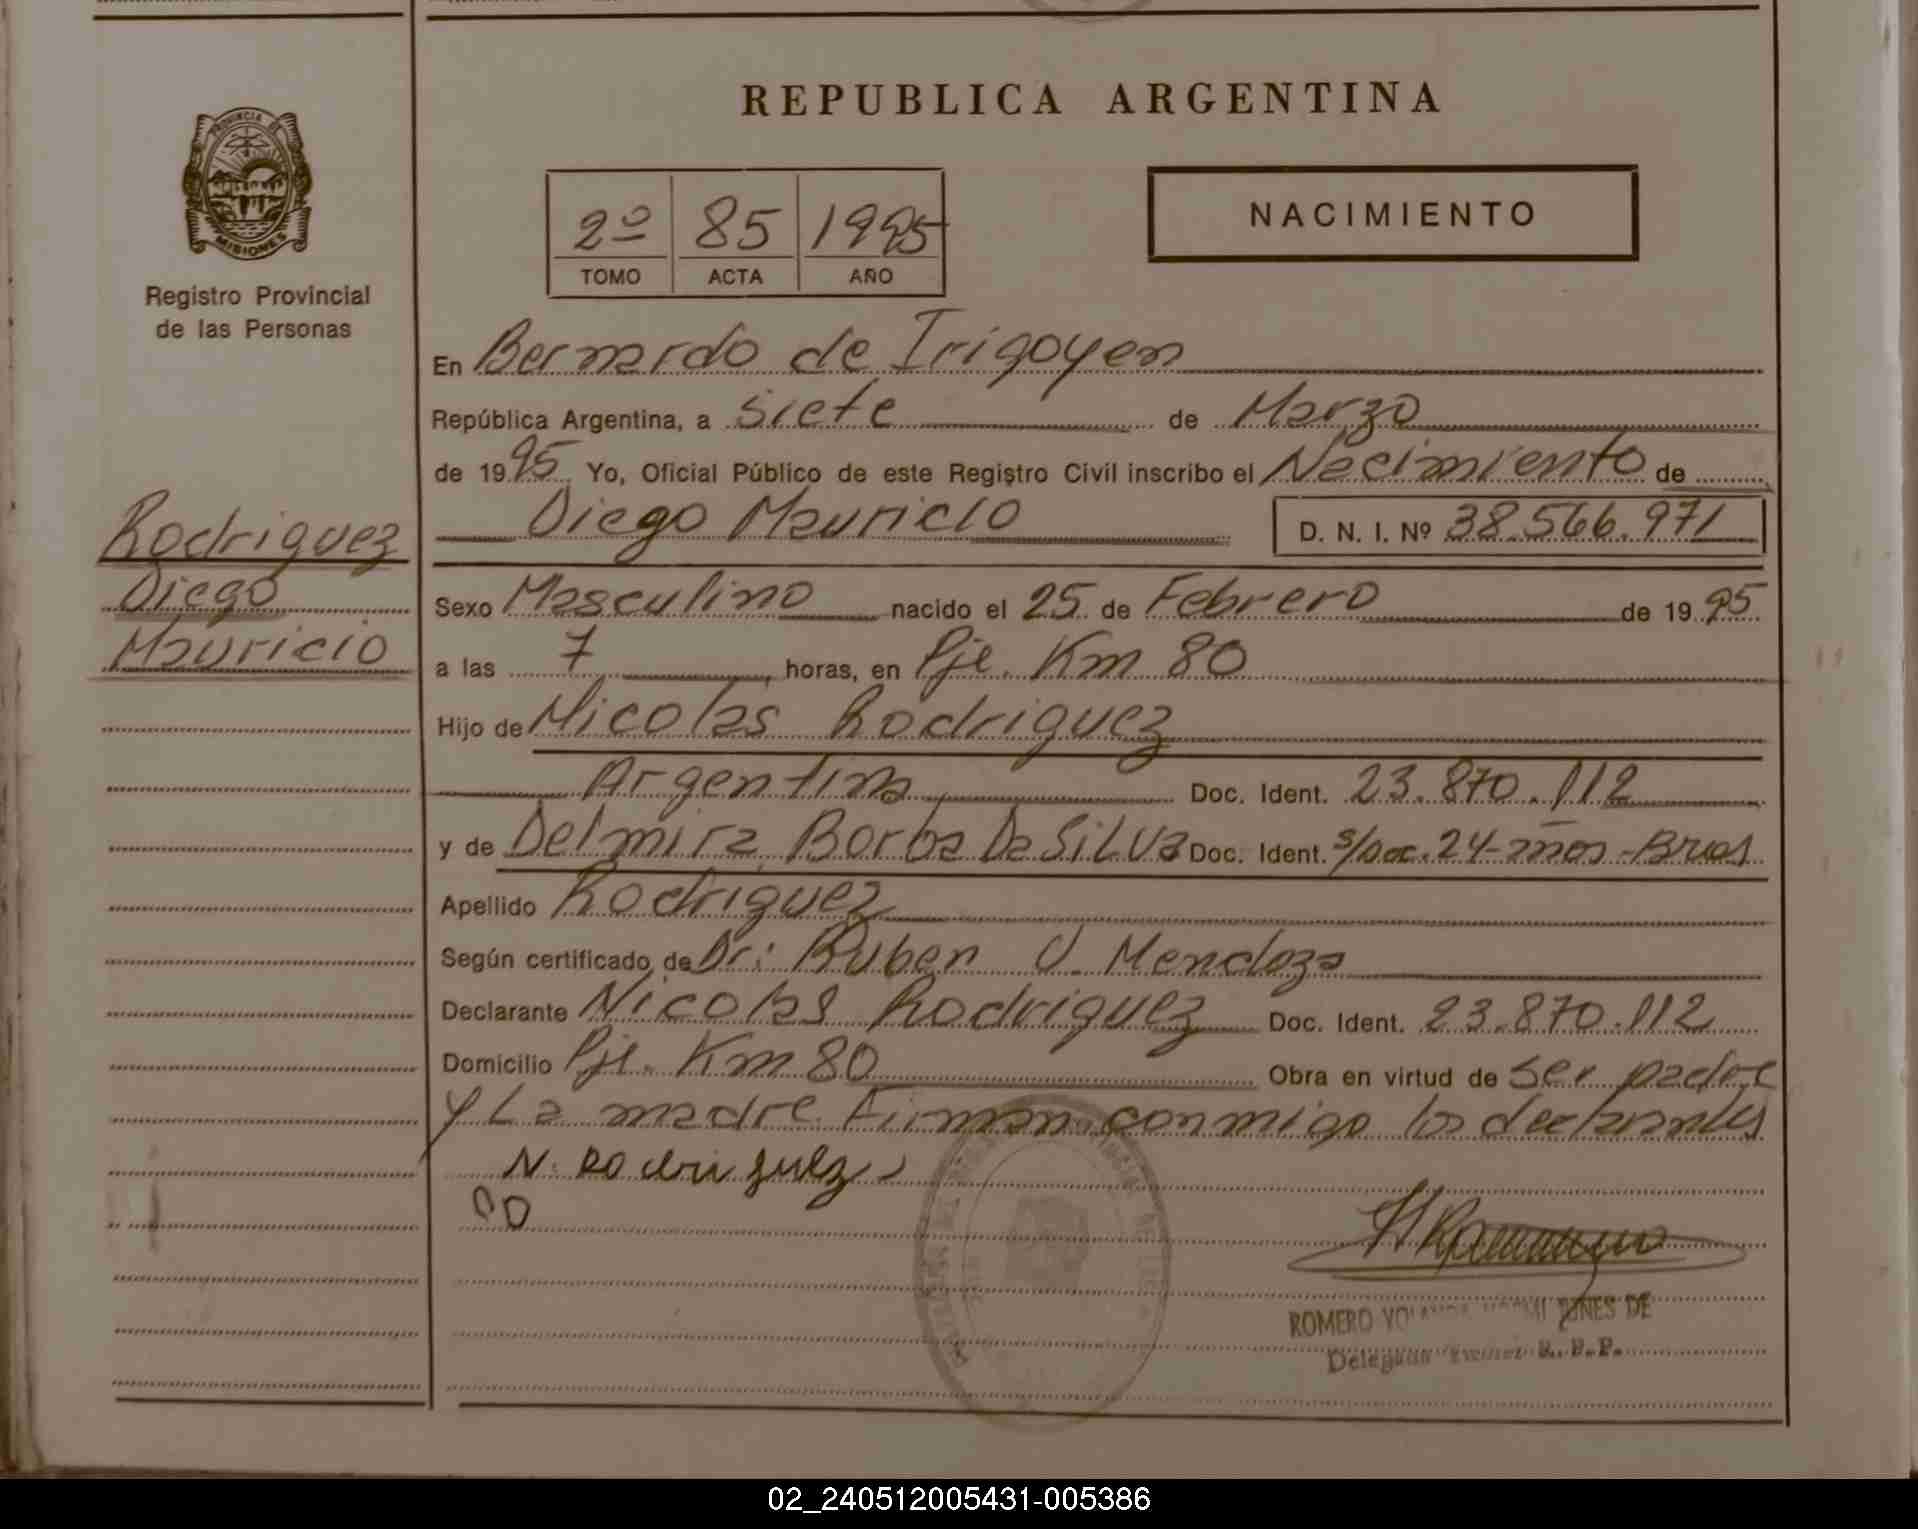 REPUBLICA ARGENTINA
PROVINCIA DE
MISIONES
Registro Provincial
de las Personas
2º 85 1995
TOMO ACTA AÑO
NACIMIENTO
En Bernardo de Irigoyen
República Argentina, a Siete de Marzo
de 1995 Yo, Oficial Público de este Registro Civil inscribo el Nacimiento de
Diego Mauricio D. N. I. Nº 38.566.971
Rodriguez
Diego
Mauricio
Sexo Masculino nacido el 25 de Febrero de 1995
a las 7 horas, en Pje. Km 80
Hijo de Nicolas Rodriguez
Argentina Doc. Ident. 23.870.112
y de Delmira Borba Da Silva Doc. Ident. s/Doc. 24-años-Bras
Apellido Rodriguez
Según certificado de Dr: Ruben O. Mendoza
Declarante Nicolas Rodriguez Doc. Ident. 23.870.112
Domicilio Pje. Km 80 Obra en virtud de Ser padre
y La madre Firman conmigo los declarantes
N. Rodriguez
ROMERO DE
R. P. P.
02_240512005431-005386